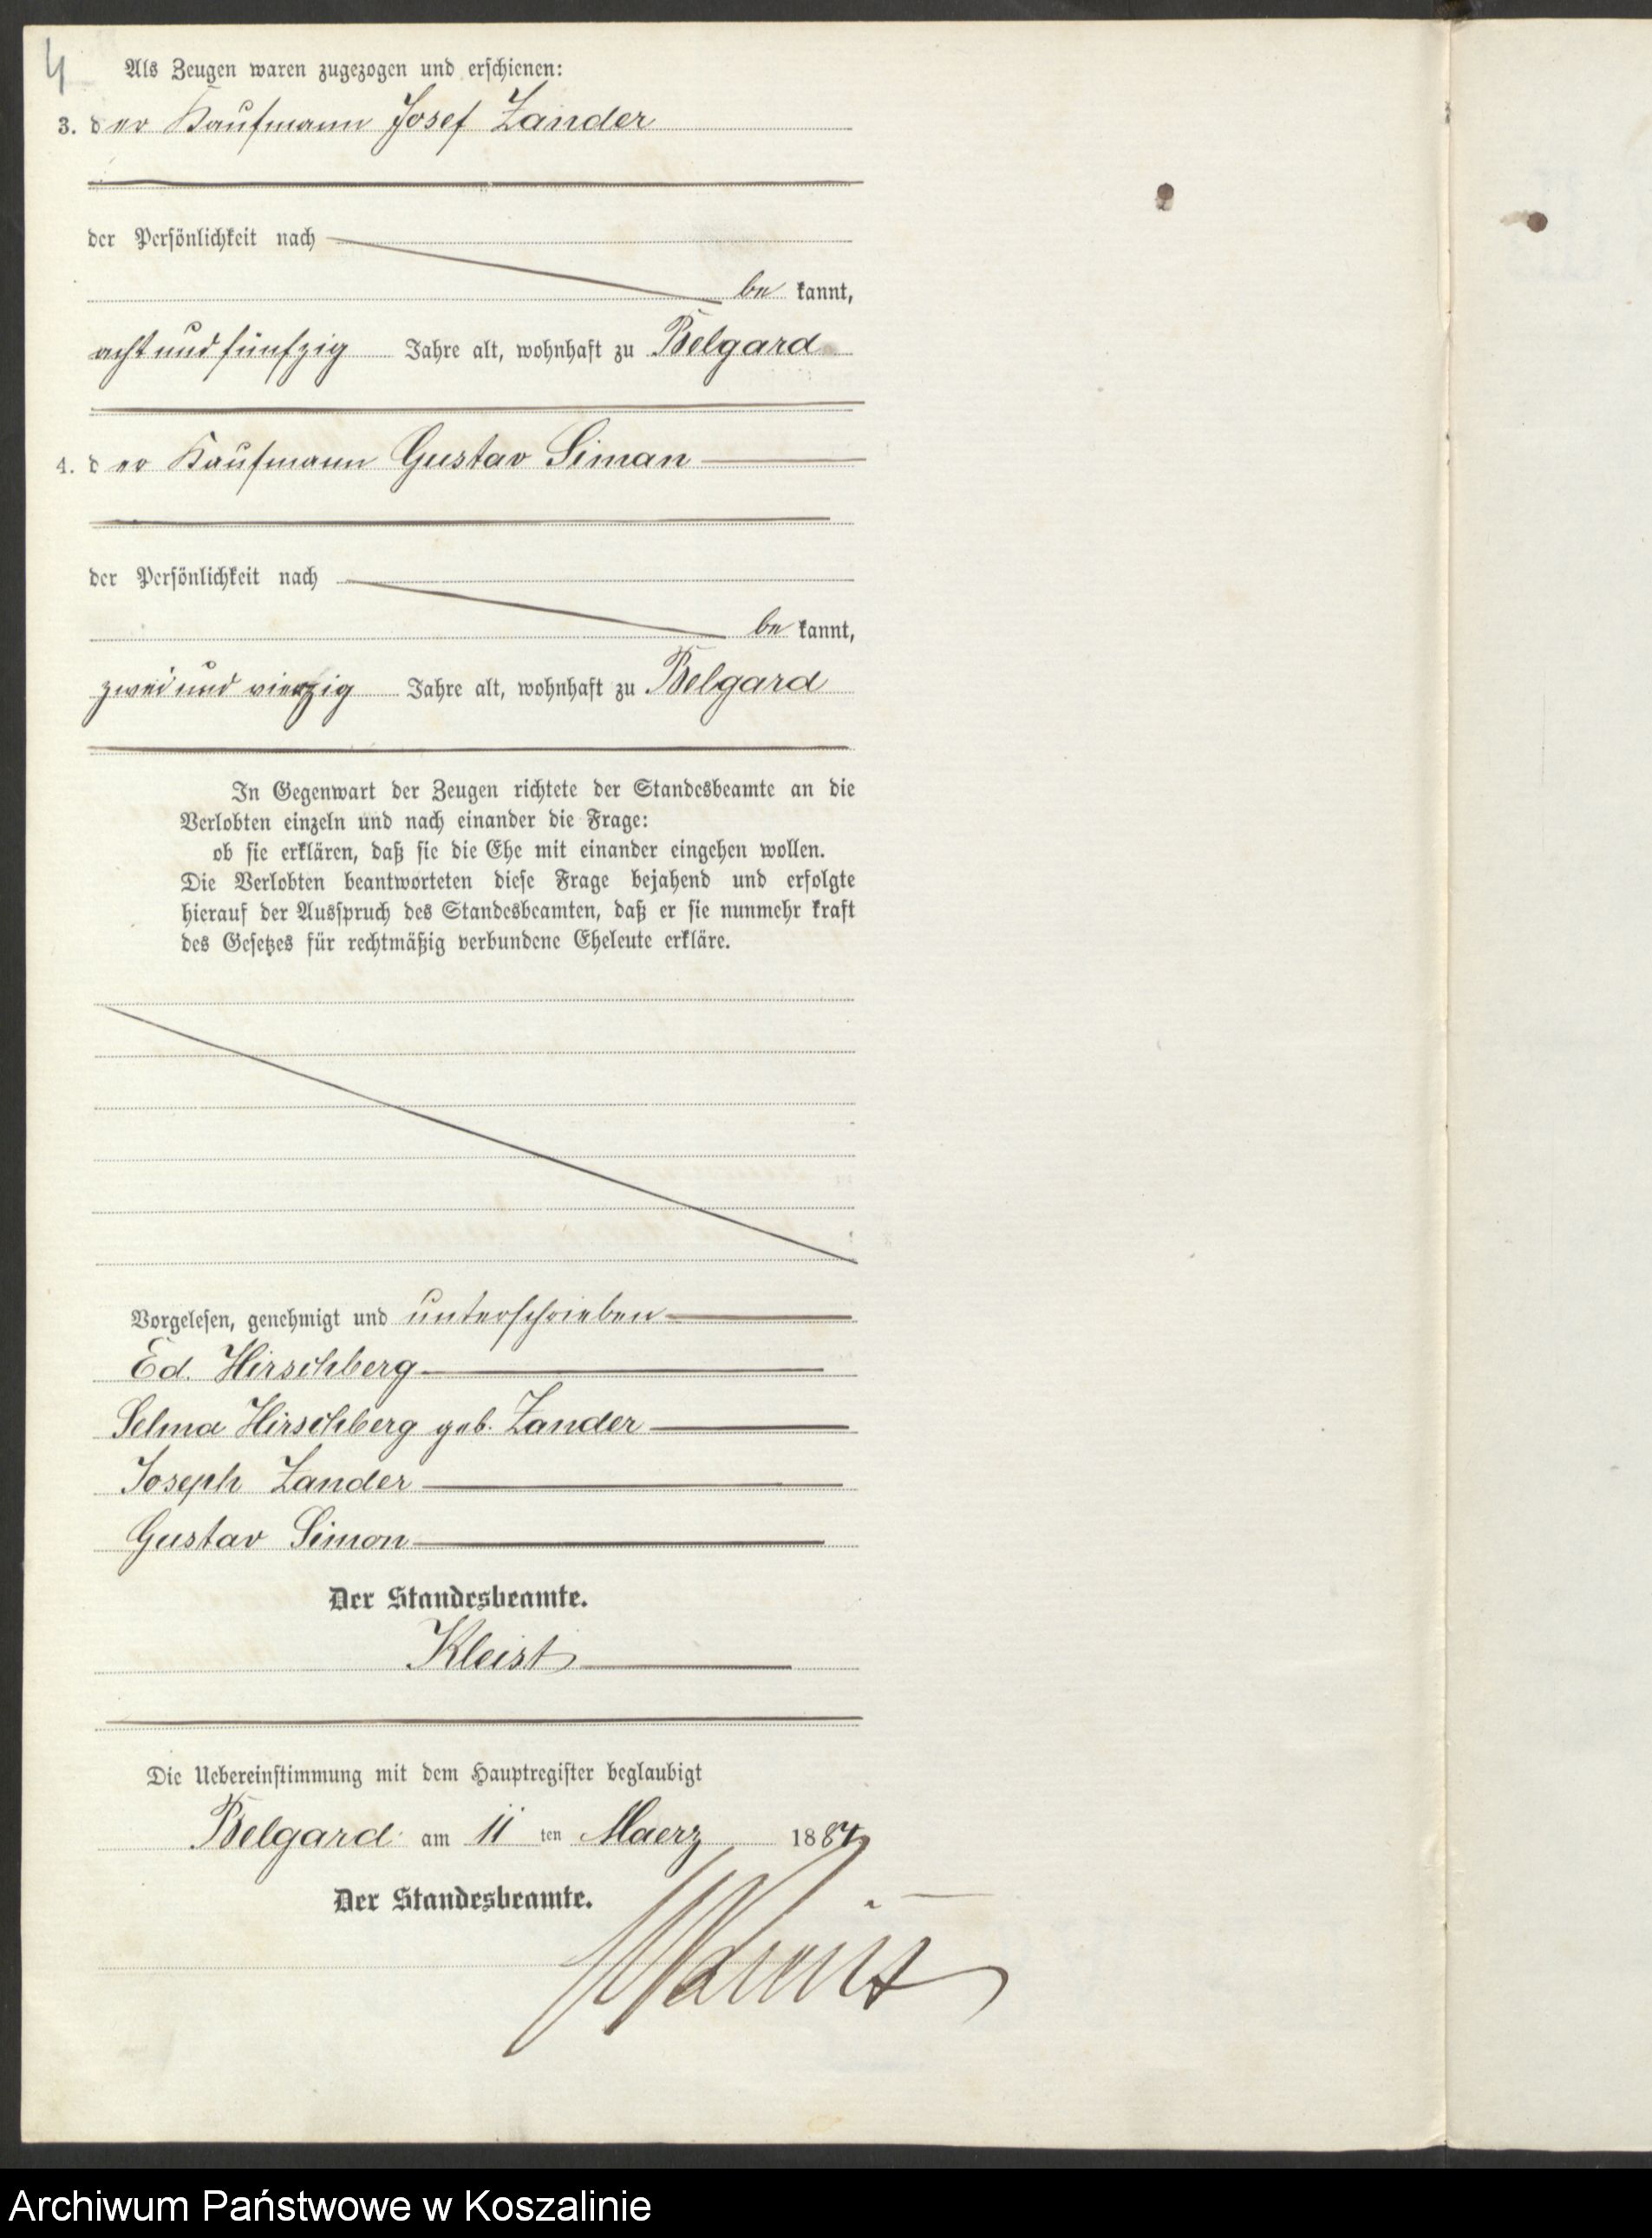 4
Als Zeugen waren zugezogen und erschienen:
3. der Kaufmann Josef Zander
der Persönlichkeit nach
bekannt,
acht und fünfzig Jahre alt, wohnhaft zu Belgard
4. der Kaufmann Gustav Siman
der Persönlichkeit nach
bekannt,
zwei und vierzig Jahre alt, wohnhaft zu Belgard
In Gegenwart der Zeugen richtete der Standesbeamte an die
Verlobten einzeln und nach einander die Frage:
ob sie erklären, daß sie die Ehe mit einander eingehen wollen.
Die Verlobten beantworteten diese Frage bejahend und erfolgte
hierauf der Ausspruch des Standesbeamten, daß er sie nunmehr kraft
des Gesetzes für rechtmäßig verbundene Eheleute erkläre.
Vorgelesen, genehmigt und unterschrieben
Ed. Hirschberg
Selma Hirschberg geb. Zander
Joseph Zander
Gustav Simon
Der Standesbeamte.
Kleist
Die Uebereinstimmung mit dem Hauptregister beglaubigt
Belgard am 11ten Maerz 188
Der Standesbeamte.
Archiwum Państwowe w Koszalinie